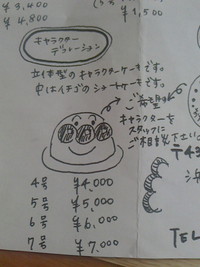 ¥3,400
¥4,800
¥1,500
キャラクター
デコレーション
立体型のキャラクターケーキです。
中はイチゴのショートケーキです。
ご希望の
キャラクターを
スタッフに
ご相談下さい
〒43
浜
4号 ¥4,000
5号 ¥5,000
6号 ¥6,000
7号 ¥7,000
TEL